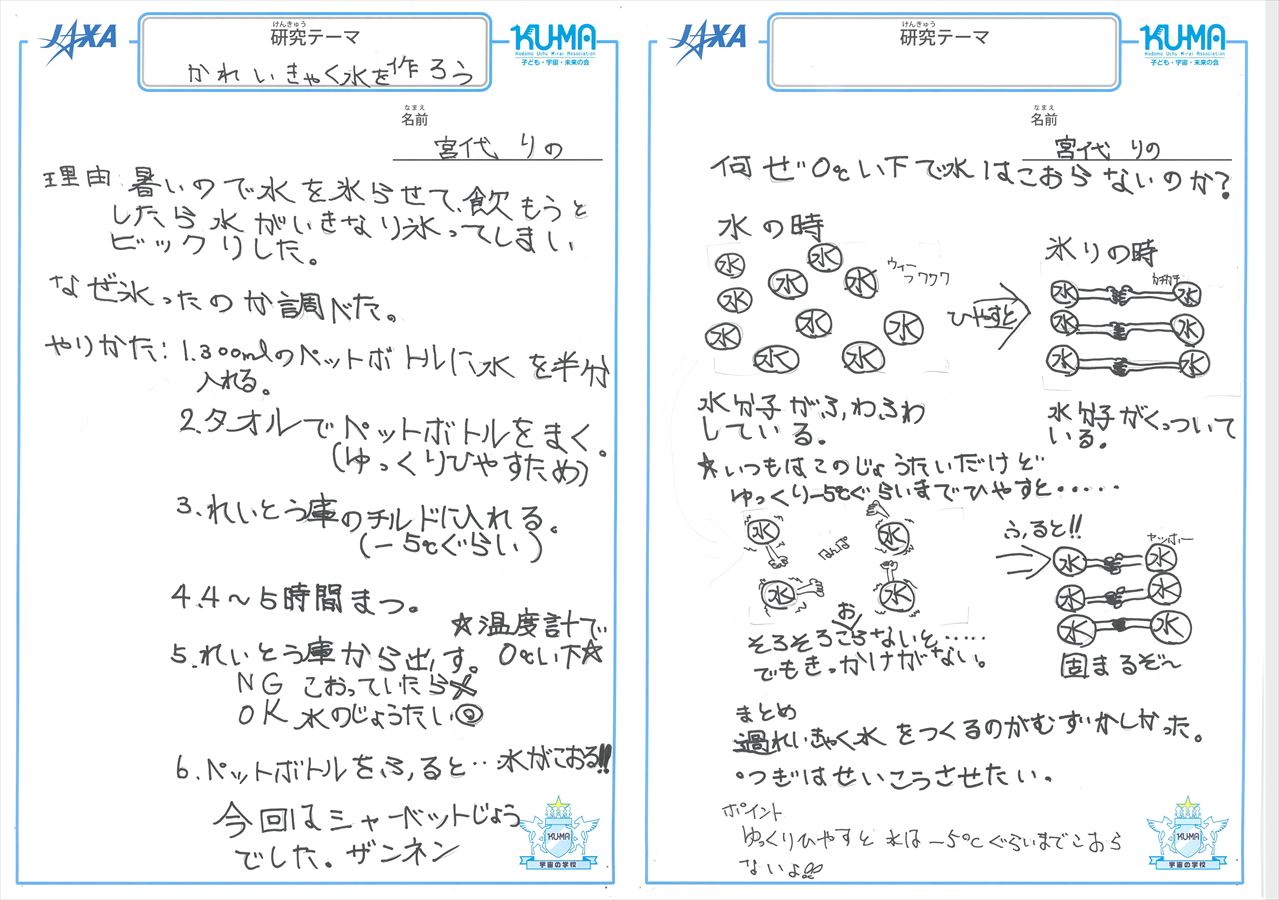 JAXA
けんきゅう
研究テーマ
かれいきゃく水を作ろう
KUMA
Kodomo Uchu Mirai Association
子ども・宇宙・未来の会
なまえ
名前
宮代 りの
理由 暑いので水を氷らせて、飲もうと
したら水がいきなり氷ってしまい
ビックリした。
なぜ氷ったのか調べた。
やりかた：1.300mlのペットボトルに水を半分
入れる。
2.タオルでペットボトルをまく。
(ゆっくりひやすため)
3.れいとう庫のチルドに入れる。
(-5℃ぐらい)
4.4～5時間まつ。
☆温度計で
0℃い下☆
5.れいとう庫から出す。
NG こおっていたら×
OK 水のじょうたい◎
6.ペットボトルをふると‥水がこおる!!
今回はシャーベットじょう
でした。ザンネン
KUMA
宇宙の学校
JAXA
けんきゅう
研究テーマ
KUMA
Kodomo Uchu Mirai Association
子ども・宇宙・未来の会
なまえ
名前
宮代 りの
何ぜ0℃い下で水はこおらないのか?
水の時
水 水 水 水 水 水 水 水 水 水
ウィー
フワフワ
ひやすと
氷りの時
カチカチ
水 水
水 水
水 水
水分子がふわふわ
している。
水分子がくっついて
いる。
☆いつもはこのじょうたいだけど
ゆっくり-5℃ぐらいまでひやすと・・・・・
水 水
水 水
ふると!!
ヤッホー
水 水
水 水
水 水
お
そろそろこらないと・・・・・
でもきっかけがない。
固まるぞ～
まとめ
過れいきゃく水をつくるのがむずかしかった。
・つぎはせいこうさせたい。
ポイント
ゆっくりひやすと水は-5℃ぐらいまでこおら
ないよ
KUMA
宇宙の学校